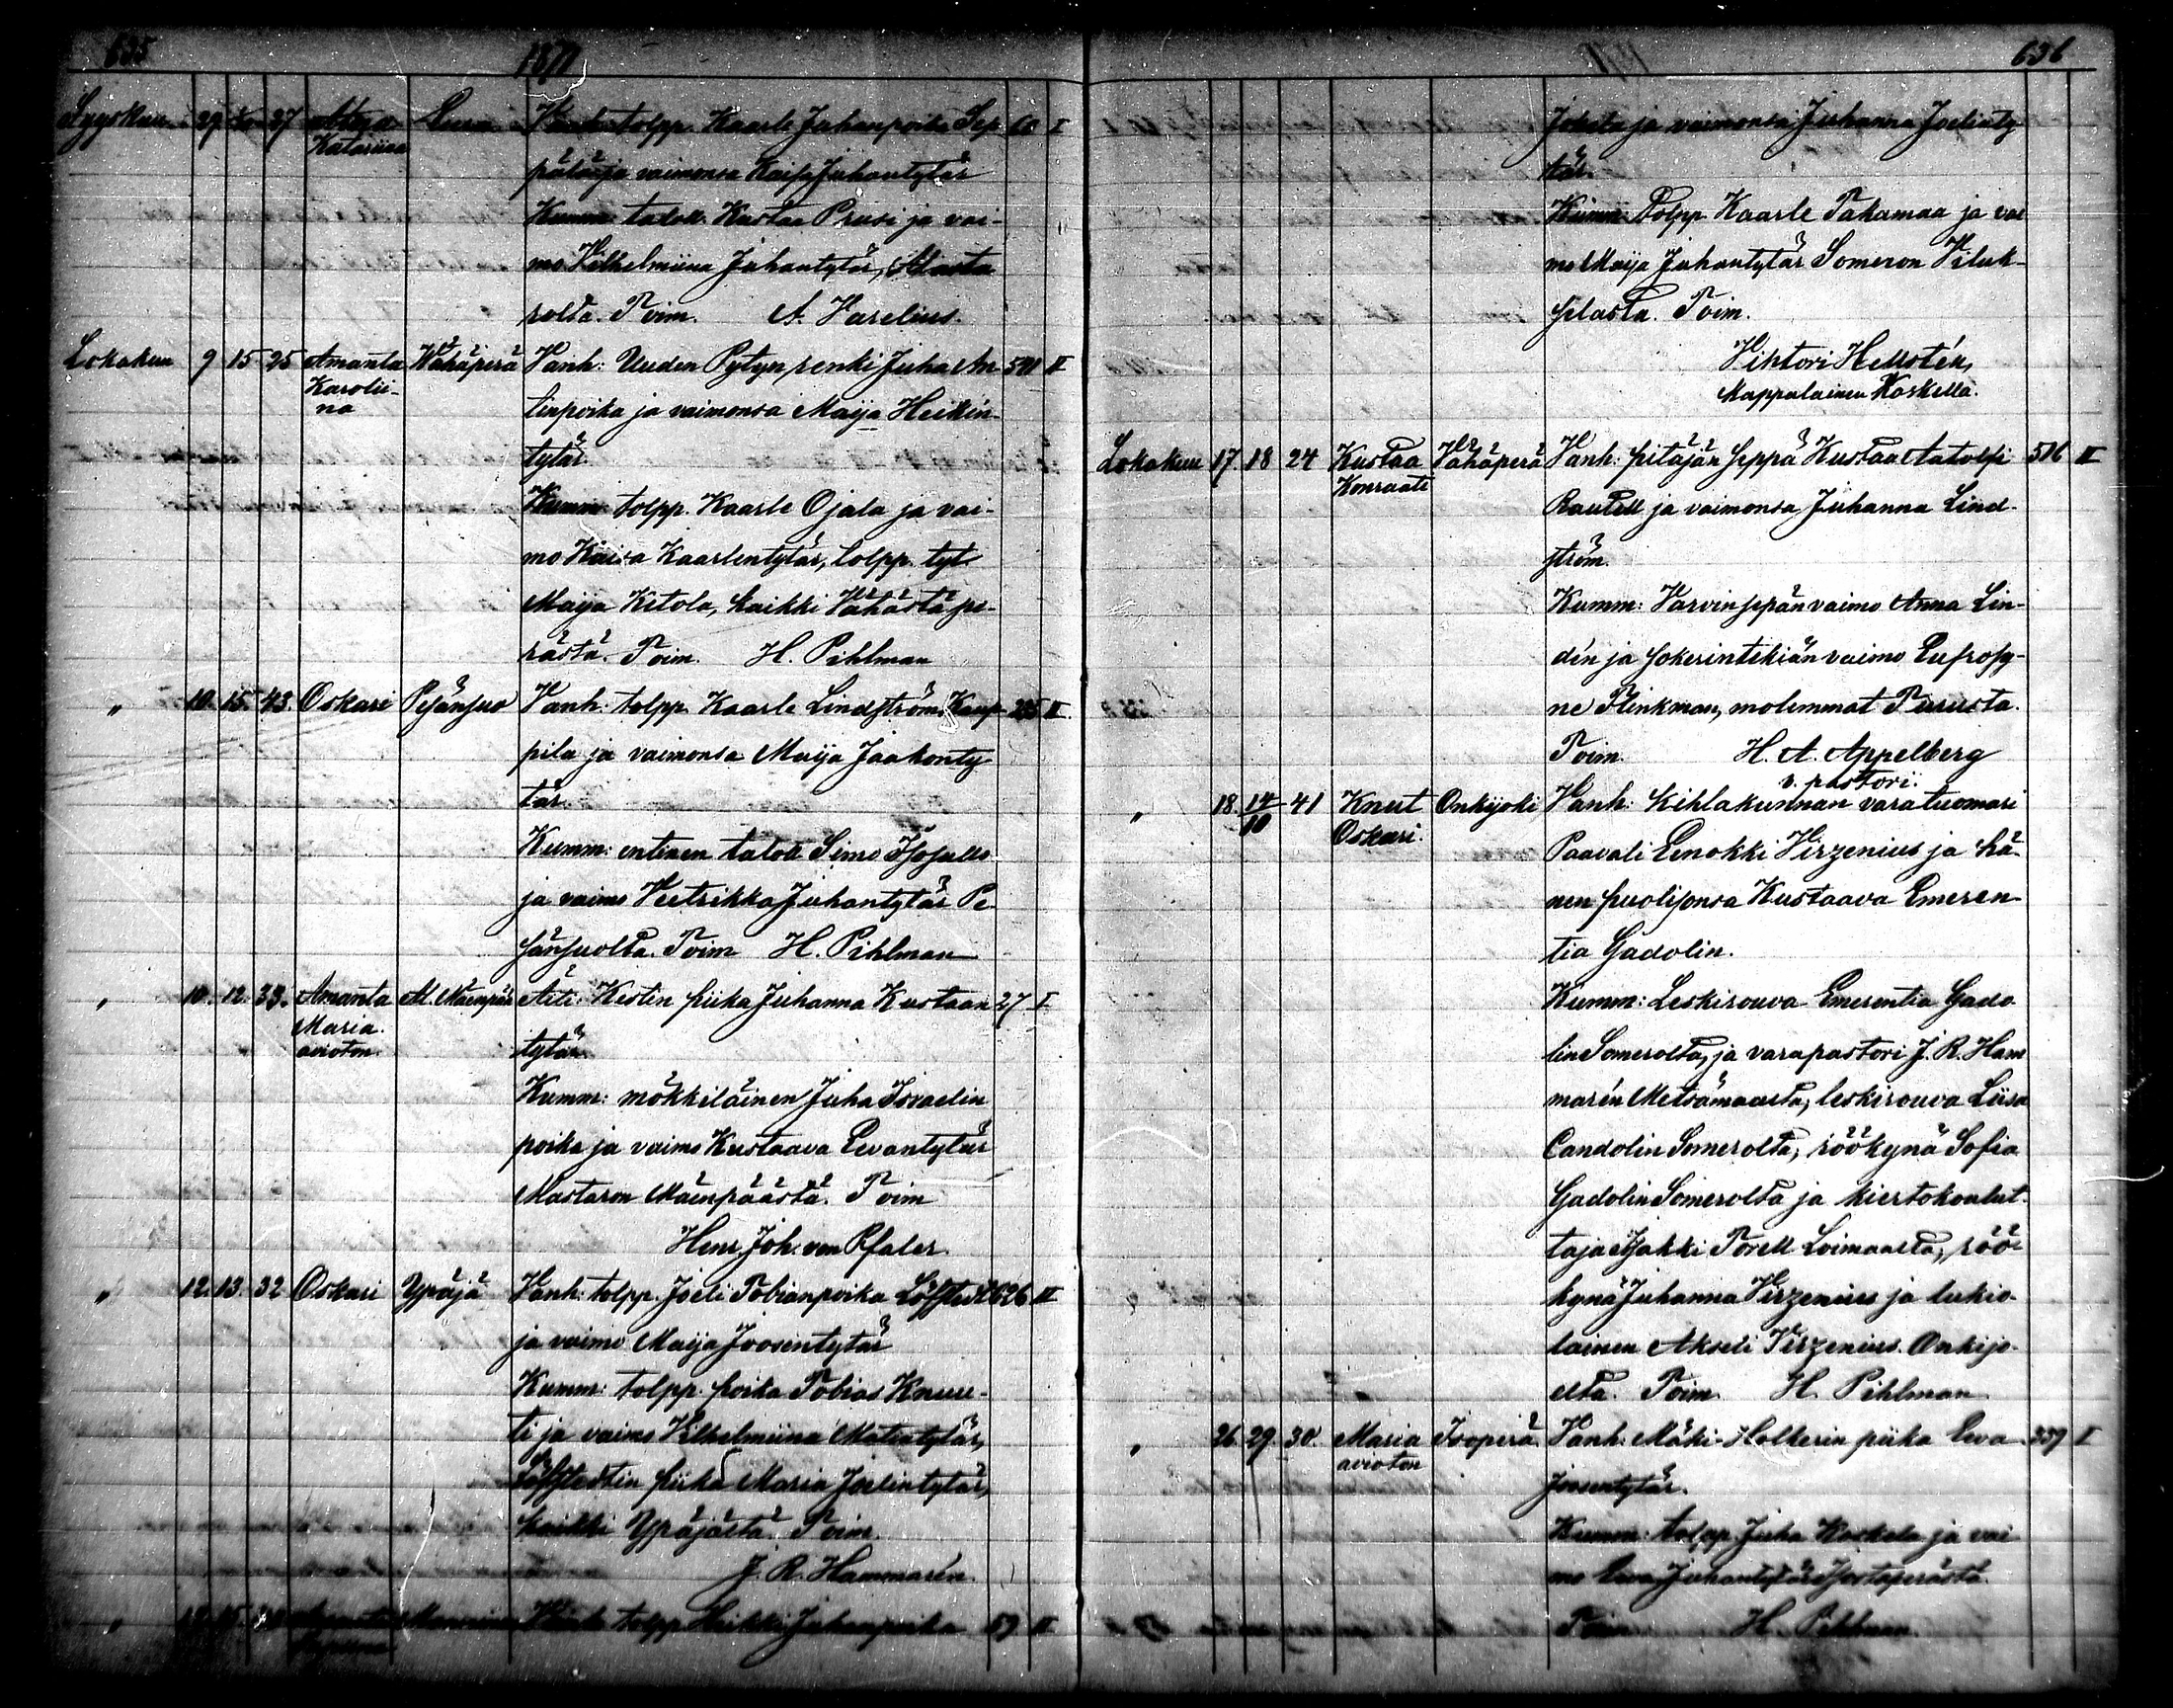 635
1877
Syyskuu 29 27 Katariina Vanh: tolpp. Kaarle Juhanpoika Sep- 60 I
pälä ja vaimonsa Kaisa Juhantytär
Kumm: Kustaa Prusi ja vai-
mo Vilhelmiina Juhantytär, Alasta-
rolta. Toim. A. Varelius.
Lokakuu 9 15 25 Amanta Wähäperä Vanh: Uuden Pytyn renki Juha An- 591 II
Karolii- tinpoika ja vaimonsa Maija Heikin-
na
tytär
Kumm: tolpp. Kaarle Ojala ja vai-
mo Kaisa Kaarlentytär, tolpp. tyt.
Maija Ketola, kaikki Vähästäpe-
rästä. Toim. H. Pihlman
" 10. 15. 43 Oskari Pesänsuo Vanh: tolpp. Kaarle Lindström Kaup- 235 II
pila ja vaimonsa Maija Jaakonty-
tär
Kumm: entinen Simo Isosallo
ja vaimo Veetrikka Juhantytär Pe-
sänsuolta. Toim H. Pihlman
" 10. 12. 33. Amanta Al. Mäenpää Äiti: Kestin piika Juhanna Kustaan- 27 I
Maria.
avioton. tytär
Kumm: mökkiläinen Juha Israelin
poika ja vaimo Kustaava Eevantytär
Mastaron Mäenpäästä. Toim
Henr. Joh. von Pfaler.
" 12. 13. 32 Oskari Ypäjä Vanh: tolpp. Joeli Tobianpoika Löfstedt 626 II
ja vaimo Maija Joosentytär
Kumm: tolpp. poika Tobias Knuu-
ti ja vaimo Vilhelmiina Matintytär,
Löfstedtin piika Maria Joelintytär,
kaikki Ypäjästä. Toim
J. R. Hammarén.
" Vanh: tolpp. Heikki Juhanpoika 59 II
636
Jokela ja vaimonsa Juhanna Joelinty-
tär.
Kumm: Tolpp. Kaarle Takamaa ja vai
mo Maija Juhantytär Someron Viluk-
selasta. Toim.
Vihtori Hellstén,
Kappalainen Koskella.
Lokakuu 17 18 24 Kustaa Vähäperä Vanh: pitäjän seppä Kustaa Aatolfi 516 II
Konraati
Rautell ja vaimonsa Juhanna Lind-
ström.
Kumm: Varvinsepän vaimo Anna Lin-
dén ja sokerintekiän vaimo Eufrosy-
ne Flinkman, molemmat Turusta.
Toim. H. A. Appelberg
v. pastori.
" 18. 14/10 41 Knut Onkijoki Vanh: Kihlakunnan varatuomari
Oskari.
Paavali Eenokki Virzenius ja hä-
nen puolisonsa Kustaava Emeren-
tia Gadolin.
Kumm: Leskirouva Emerentia Gado
lin Somerolta, ja varapastori J. R. Ham
marén Metsämaasta, leskirouva Liisa
Candolin Somerolta, röökynä Sofia
Gadolin Somerolta ja kiertokoulut-
taja Jakki Torell Loimaalta, röö-
kynä Juhanna Virzenius ja lukio-
lainen Akseli Virzenius Onkijo-
elta. Toim. H. Pihlman
" 26. 29. 30. Maria Isoperä Vanh: Mäki-Holkerin piika Eeva 339 I
avioton
Joosentytär.
Kumm: tolpp. Juha Koskela ja vai
mo Eeva Juhantytär Isostaperästä.
Toim H. Pihlman.